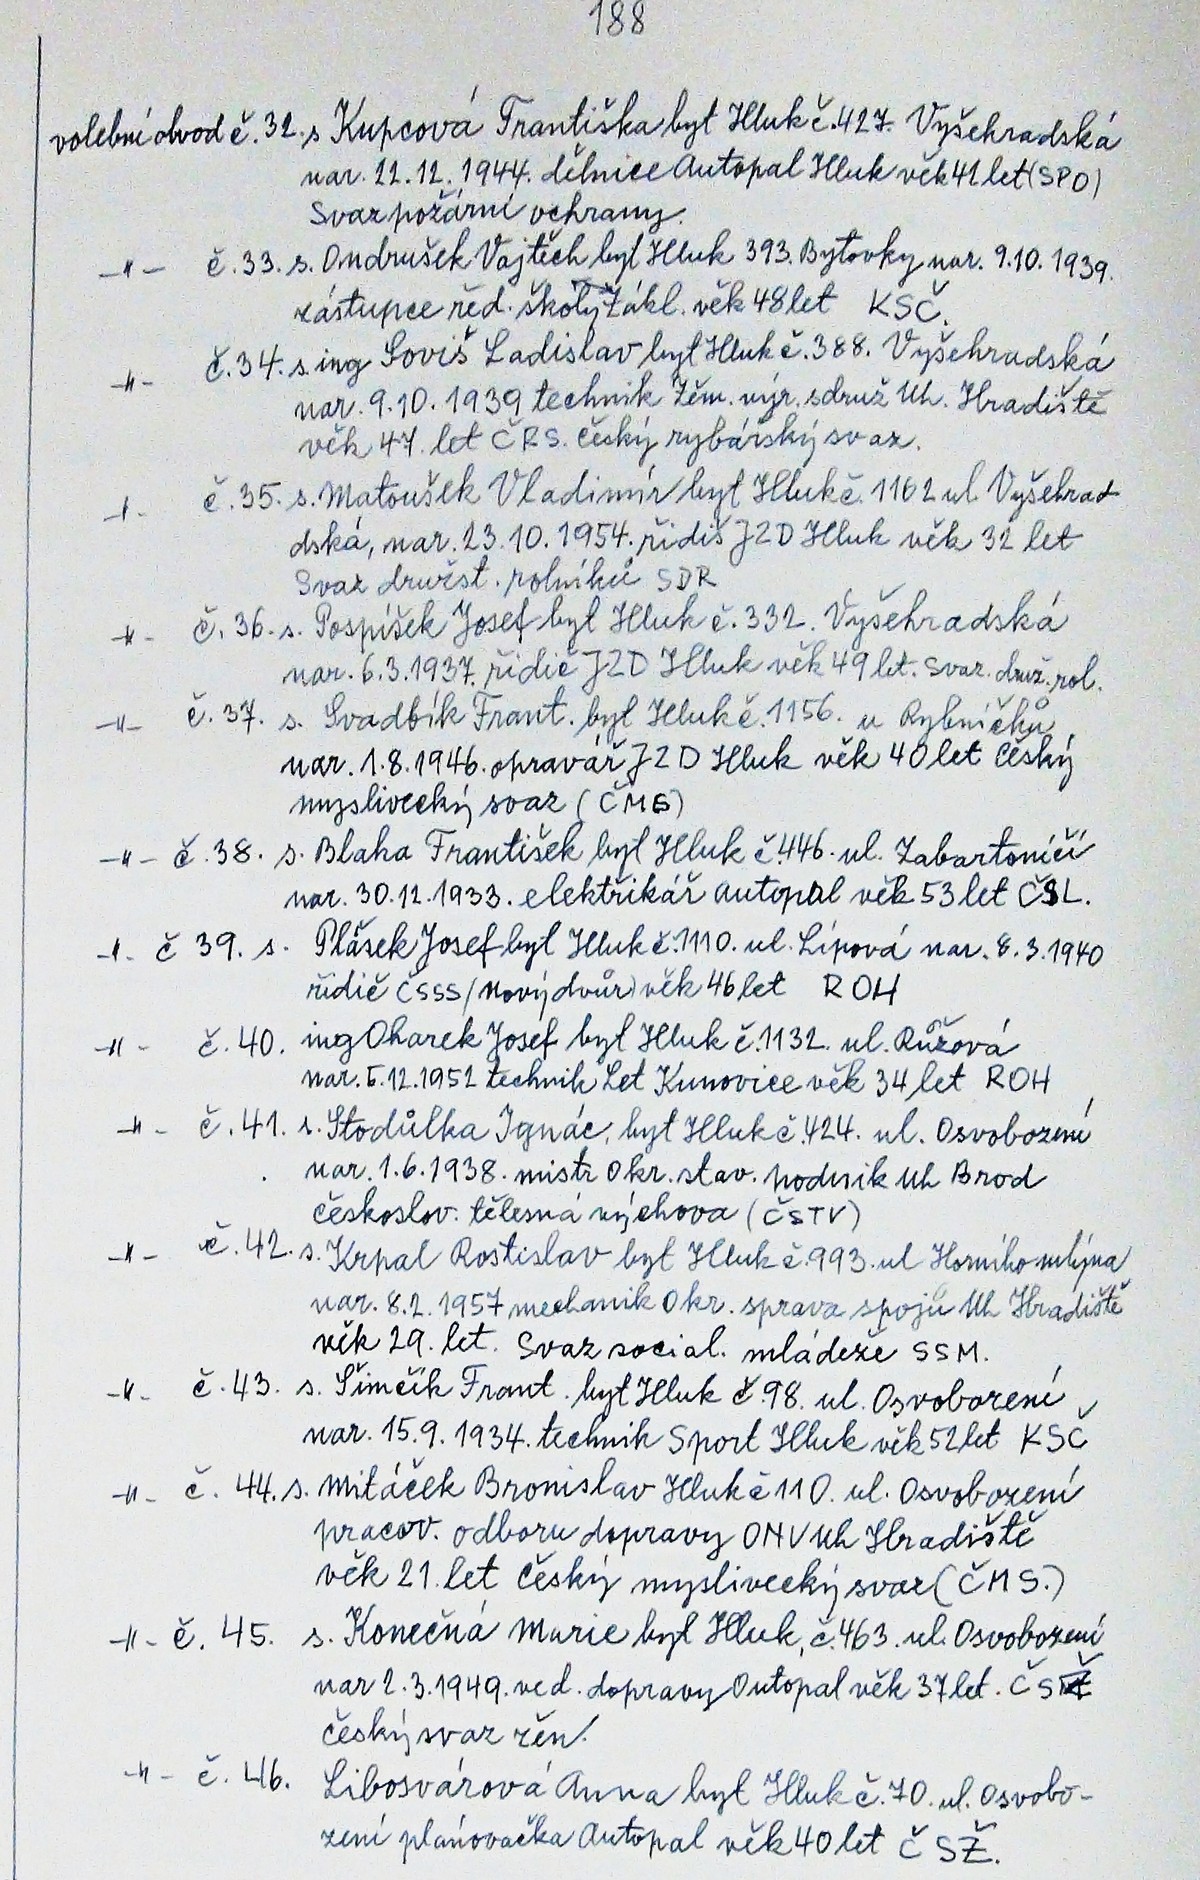 188
volební obvod č. 32. s Kupcová Františka byt Hluk č. 427. Vyšehradská
nar. 22.12. 1944. dělnice Autopal Hluk věk 41 let (SPO)
Svaz požární ochrany.
-"- č. 33. s. Ondrušek Vojtěch byt Hluk 393. Bytovky nar. 9.10. 1939.
zástupce řed. školy Zákl. věk 48 let KSČ.
-"- č. 34. s. ing Soviš Ladislav byt Hluk č. 388. Vyšehradská
nar. 9.10. 1939 technik Zěm. výr. sdruž Uh. Hradiště
věk 47. let ČRS. český rybářský svaz.
-"- č. 35. s. Matoušek Vladimír byt Hluk č. 1162 ul Vyšehrad
dská, nar. 23.10. 1954. řidiš JZD Hluk věk 32 let
Svaz družst. rolníků SDR
-"- č. 36. s. Pospíšek Josef byt Hluk č. 332. Vyšehradská
nar. 6.3.1937. řidič JZD Hluk věk 49 let. Svaz. druž. rol.
-"- č. 37. s. Svadbík Frant. byt Hluk č. 1156. u Rybníčků
nar. 1.8.1946. opravář JZD Hluk věk 40 let Český
myslivecký svaz (ČMS)
-"- č. 38. s. Blaha František byt Hluk č. 446. ul. Zabartoničí
nar. 30.12.1933. elektřikář autopal věk 53 let ČSL.
-"- č 39. s. Plášek Josef byt Hluk č. 1110. ul. Lipová nar. 8.3.1940
řidič ČSSS (Nový dvůr) věk 46 let ROH
-"- č. 40. ing Oharek Josef byt Hluk č. 1132. ul. Růžová
nar. 5.12.1952 technik Let Kunovice věk 34 let ROH
-"- č. 41. s. Stodůlka Ignác, byt Hluk č. 424. ul. Osvobození
nar. 1.6.1938. mistr Okr. stav. podnik Uh Brod
českoslov. tělesná výchova (ČSTV)
-"- č. 42. s. Krpal Rostislav byt Hluk č. 993. ul Horního mlýna
nar. 8.2. 1957 mechanik Okr. sprava spojů Uh Hradiště
věk 29. let. Svaz social. mládeže SSM.
-"- č. 43. s. Šimčík Frant. byt Hluk č. 98. ul. Osvobození
nar. 15.9. 1934. technik Sport Hluk věk 52 let KSČ
-"- č. 44. s. Mitáček Bronislav Hluk č 110. ul. Osvobození
pracov. odboru dopravy ONV Uh Hradiště
věk 21. let Český myslivecký svaz (ČMS.)
-"- č. 45. s. Konečná Marie byt Hluk, č. 463. ul. Osvobození
nar 2.3.1949. ved. dopravy Autopal věk 37 let. ČSŽ
český svaz žen.
-"- č. 46. Libosvárová Anna byt Hluk č. 70. ul. Osvobo-
zení plánovačka Autopal věk 40 let ČSŽ.